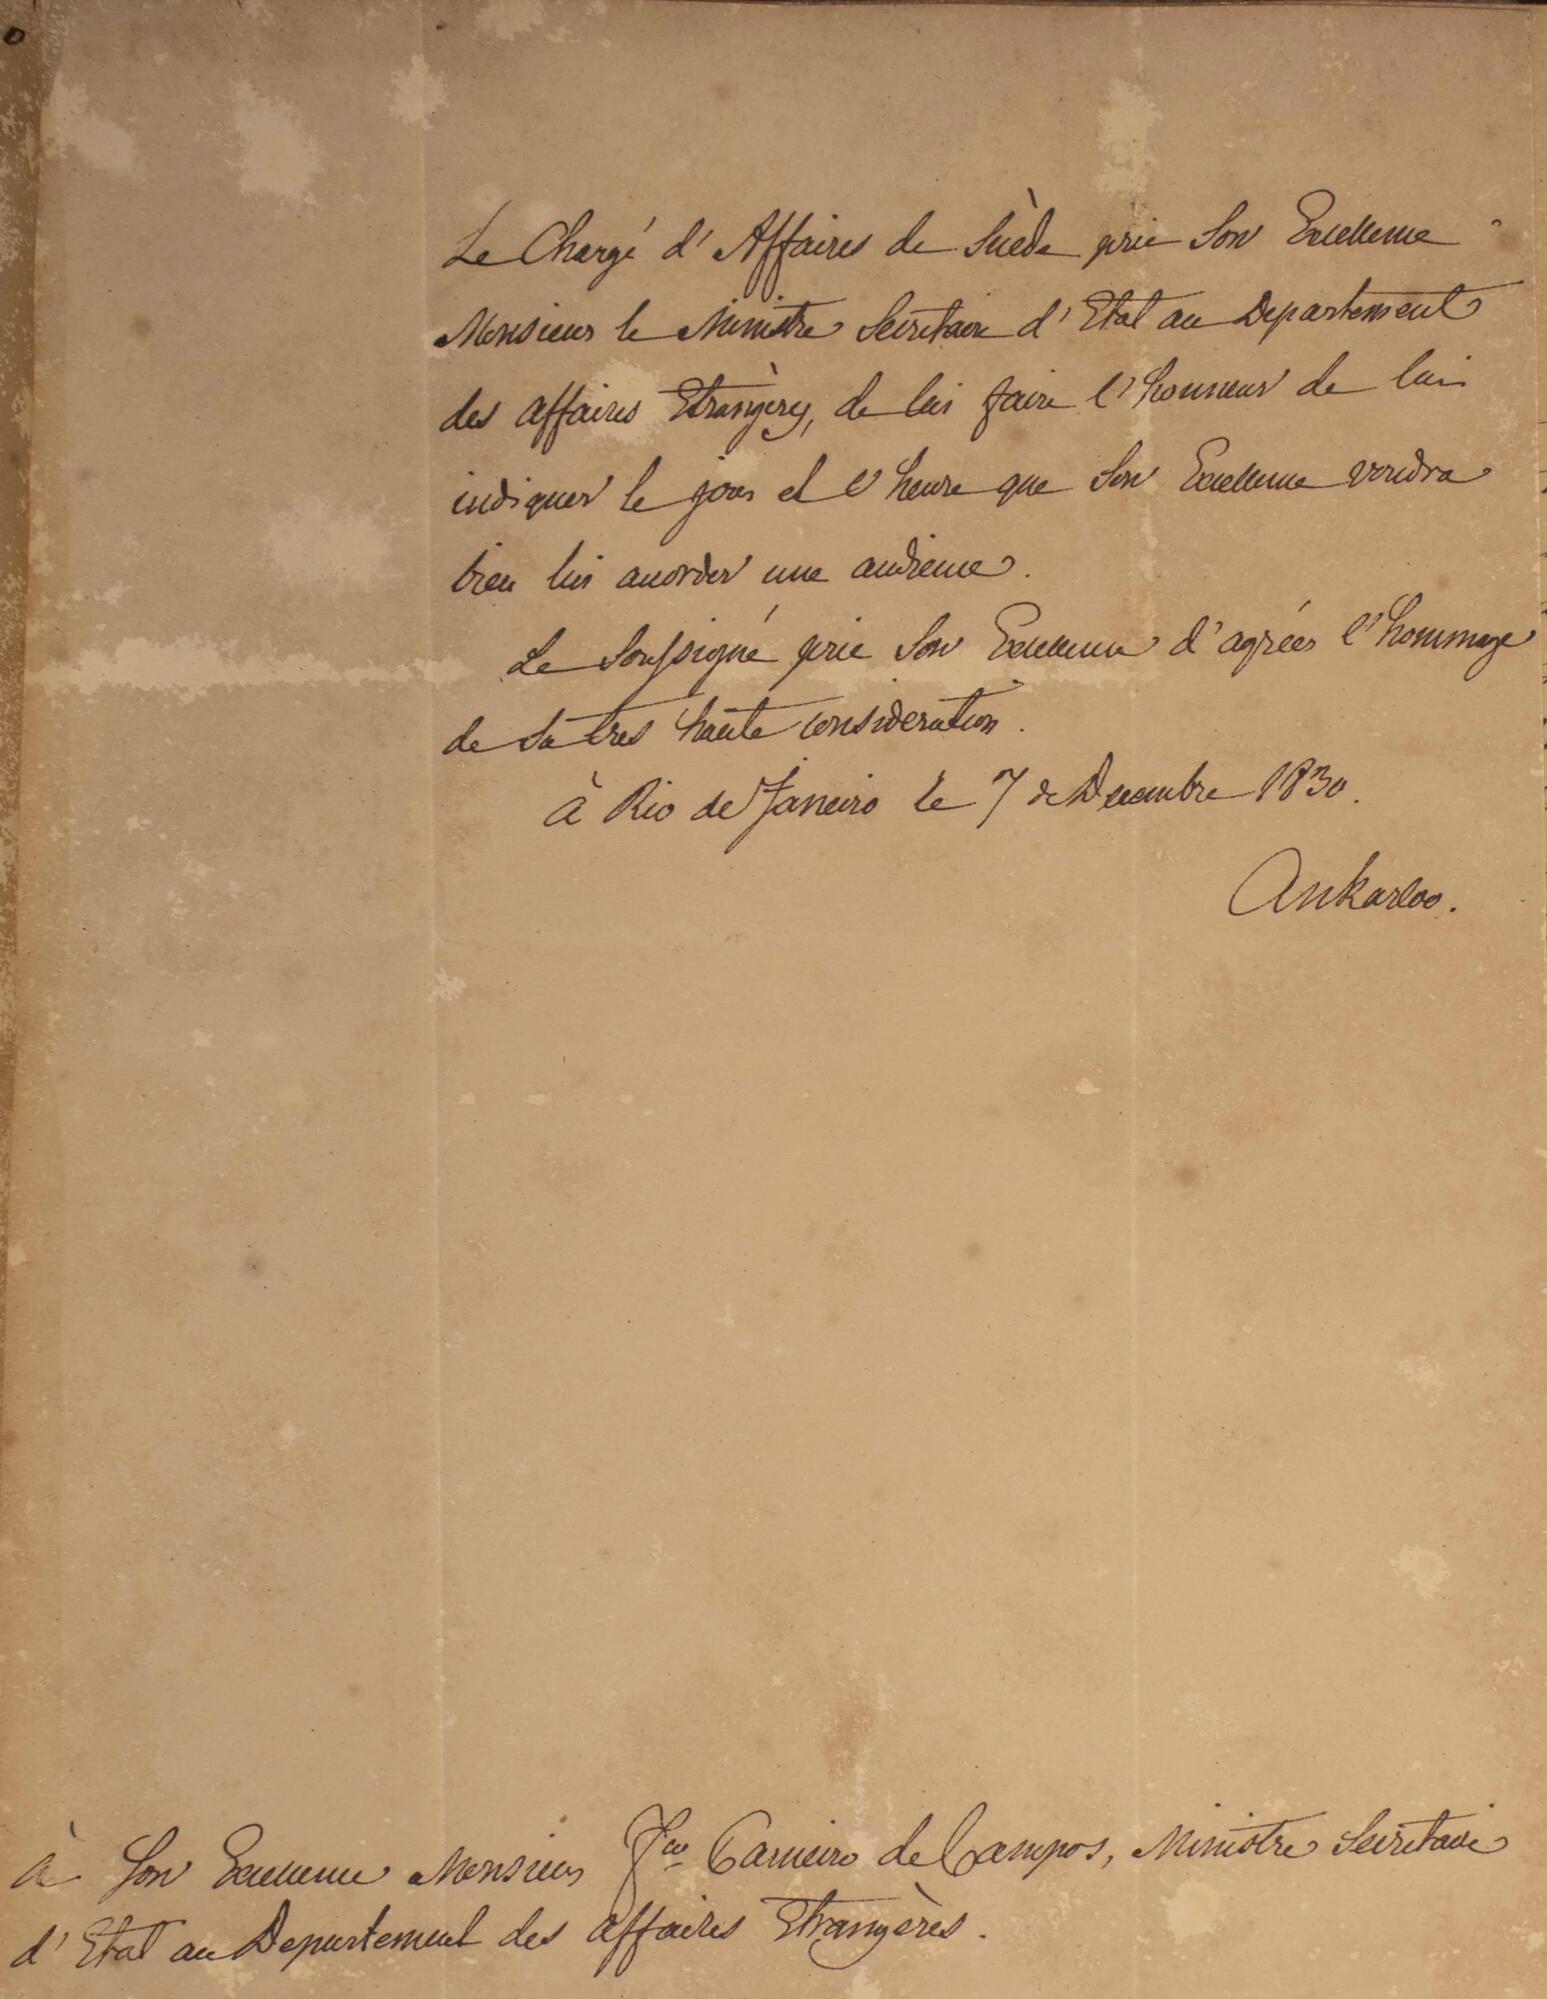 Le Chargé d'Affaires de Suède prie Son Excellence
Monsieur le Ministre Secrétaire d'Etat au Departement
des affaires Etrangères, de lui faire l'honneur de lui
indiquer le jour et l'heure que Son Excellence voudra
bien lui accorder une audience.
Le Soussigné prie Son Excellence d'agréer l'hommage
de Sa très haute consideration.
à Rio de Janeiro le 7 de Decembre 1830.
Ankarloo.
à Son Excellence Monsieur Fco Carneiro de Campos, Ministre Secrétaire
d'Etat au Departement des affaires Etrangères.